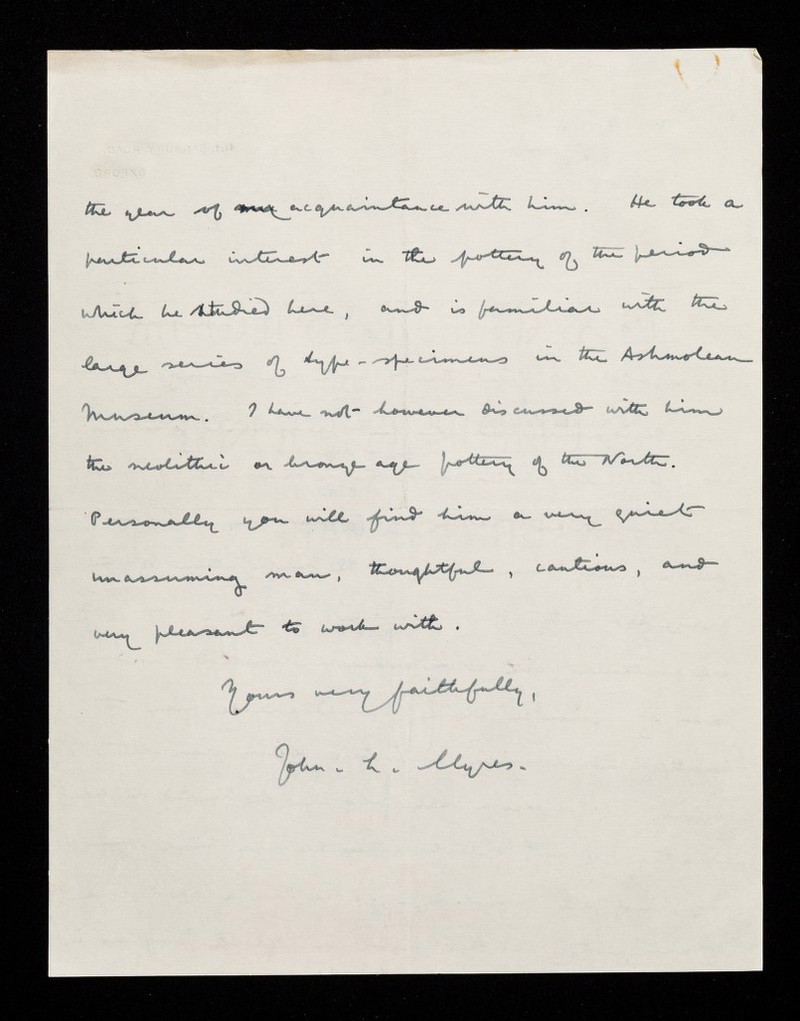 the year of my acquaintance with him. He took a
particular interest in the pottery of the period
which he studied here, and is familiar with the
large series of type-specimens in the Ashmolean
Museum. I have not however discussed with him
the neolithic or bronze age pottery of the North.
Personally you will find him a very quiet
unassuming man, thoughtful, cautious, and
very pleasant to work with.
Yours very faithfully,
John. L. Myres.